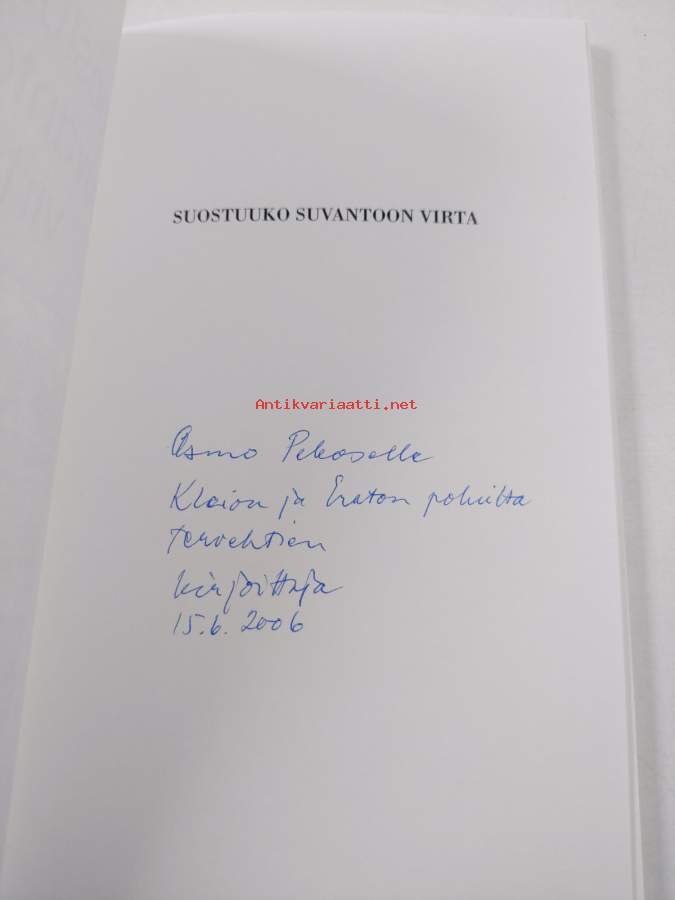 SUOSTUUKO SUVANTOON VIRTA
Antikvariaatti.net
Asmo Pekoselle
Kleion ja Eraton poluilta
tervehtien
kirjoittaja
15.6. 2006